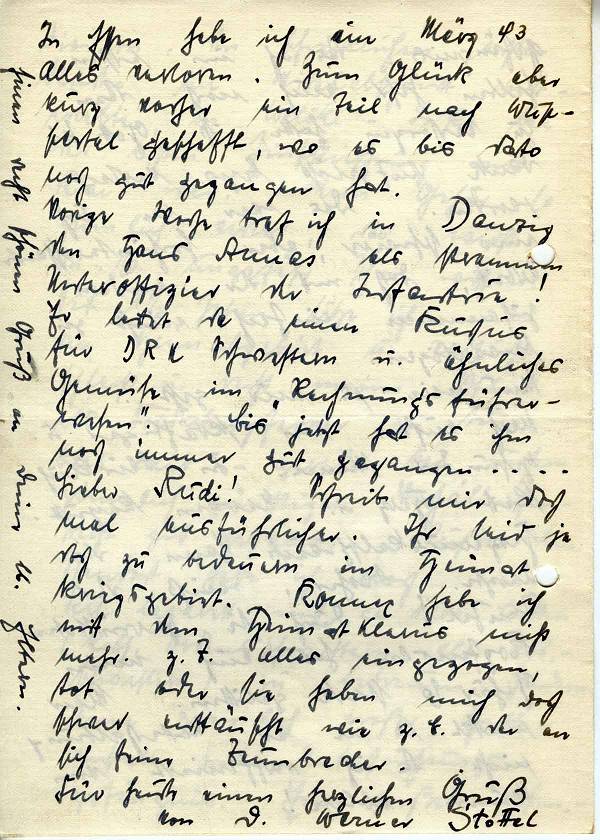 In Essen habe ich im März 43
alles verloren. Zum Glück aber
kurz vorher ein Teil nach Wup-
pertal geschafft, wo es bis dato
noch gut gegangen hat.
Vorige Woche traf ich in Danzig
den Hans Annas als strammen
Unteroffizier der Infanterie!
Er leitet da einen Kursus
für DRK Schwestern u. ähnliches
Gemüse im "Rechnungsführer-
wesen". bis jetzt hat es ihm
noch immer gut gegangen.....
Lieber Rudi! Schreib mir doch
mal ausführlicher. Ihr seid ja
doch zu bedauern im Heimat
kriegsgebiet. Konnex habe ich
mit dem Heimat Klerus nicht
mehr. z. Z. alles eingezogen,
tot oder sie haben mich doch
schwer enttäuscht wie z. B. der an
sich feine Zumbreder.
Für heute einen herzlichen Gruß
von D. Werner Stoffel
Einen recht schönen Gruß an Deine lb. Eltern.